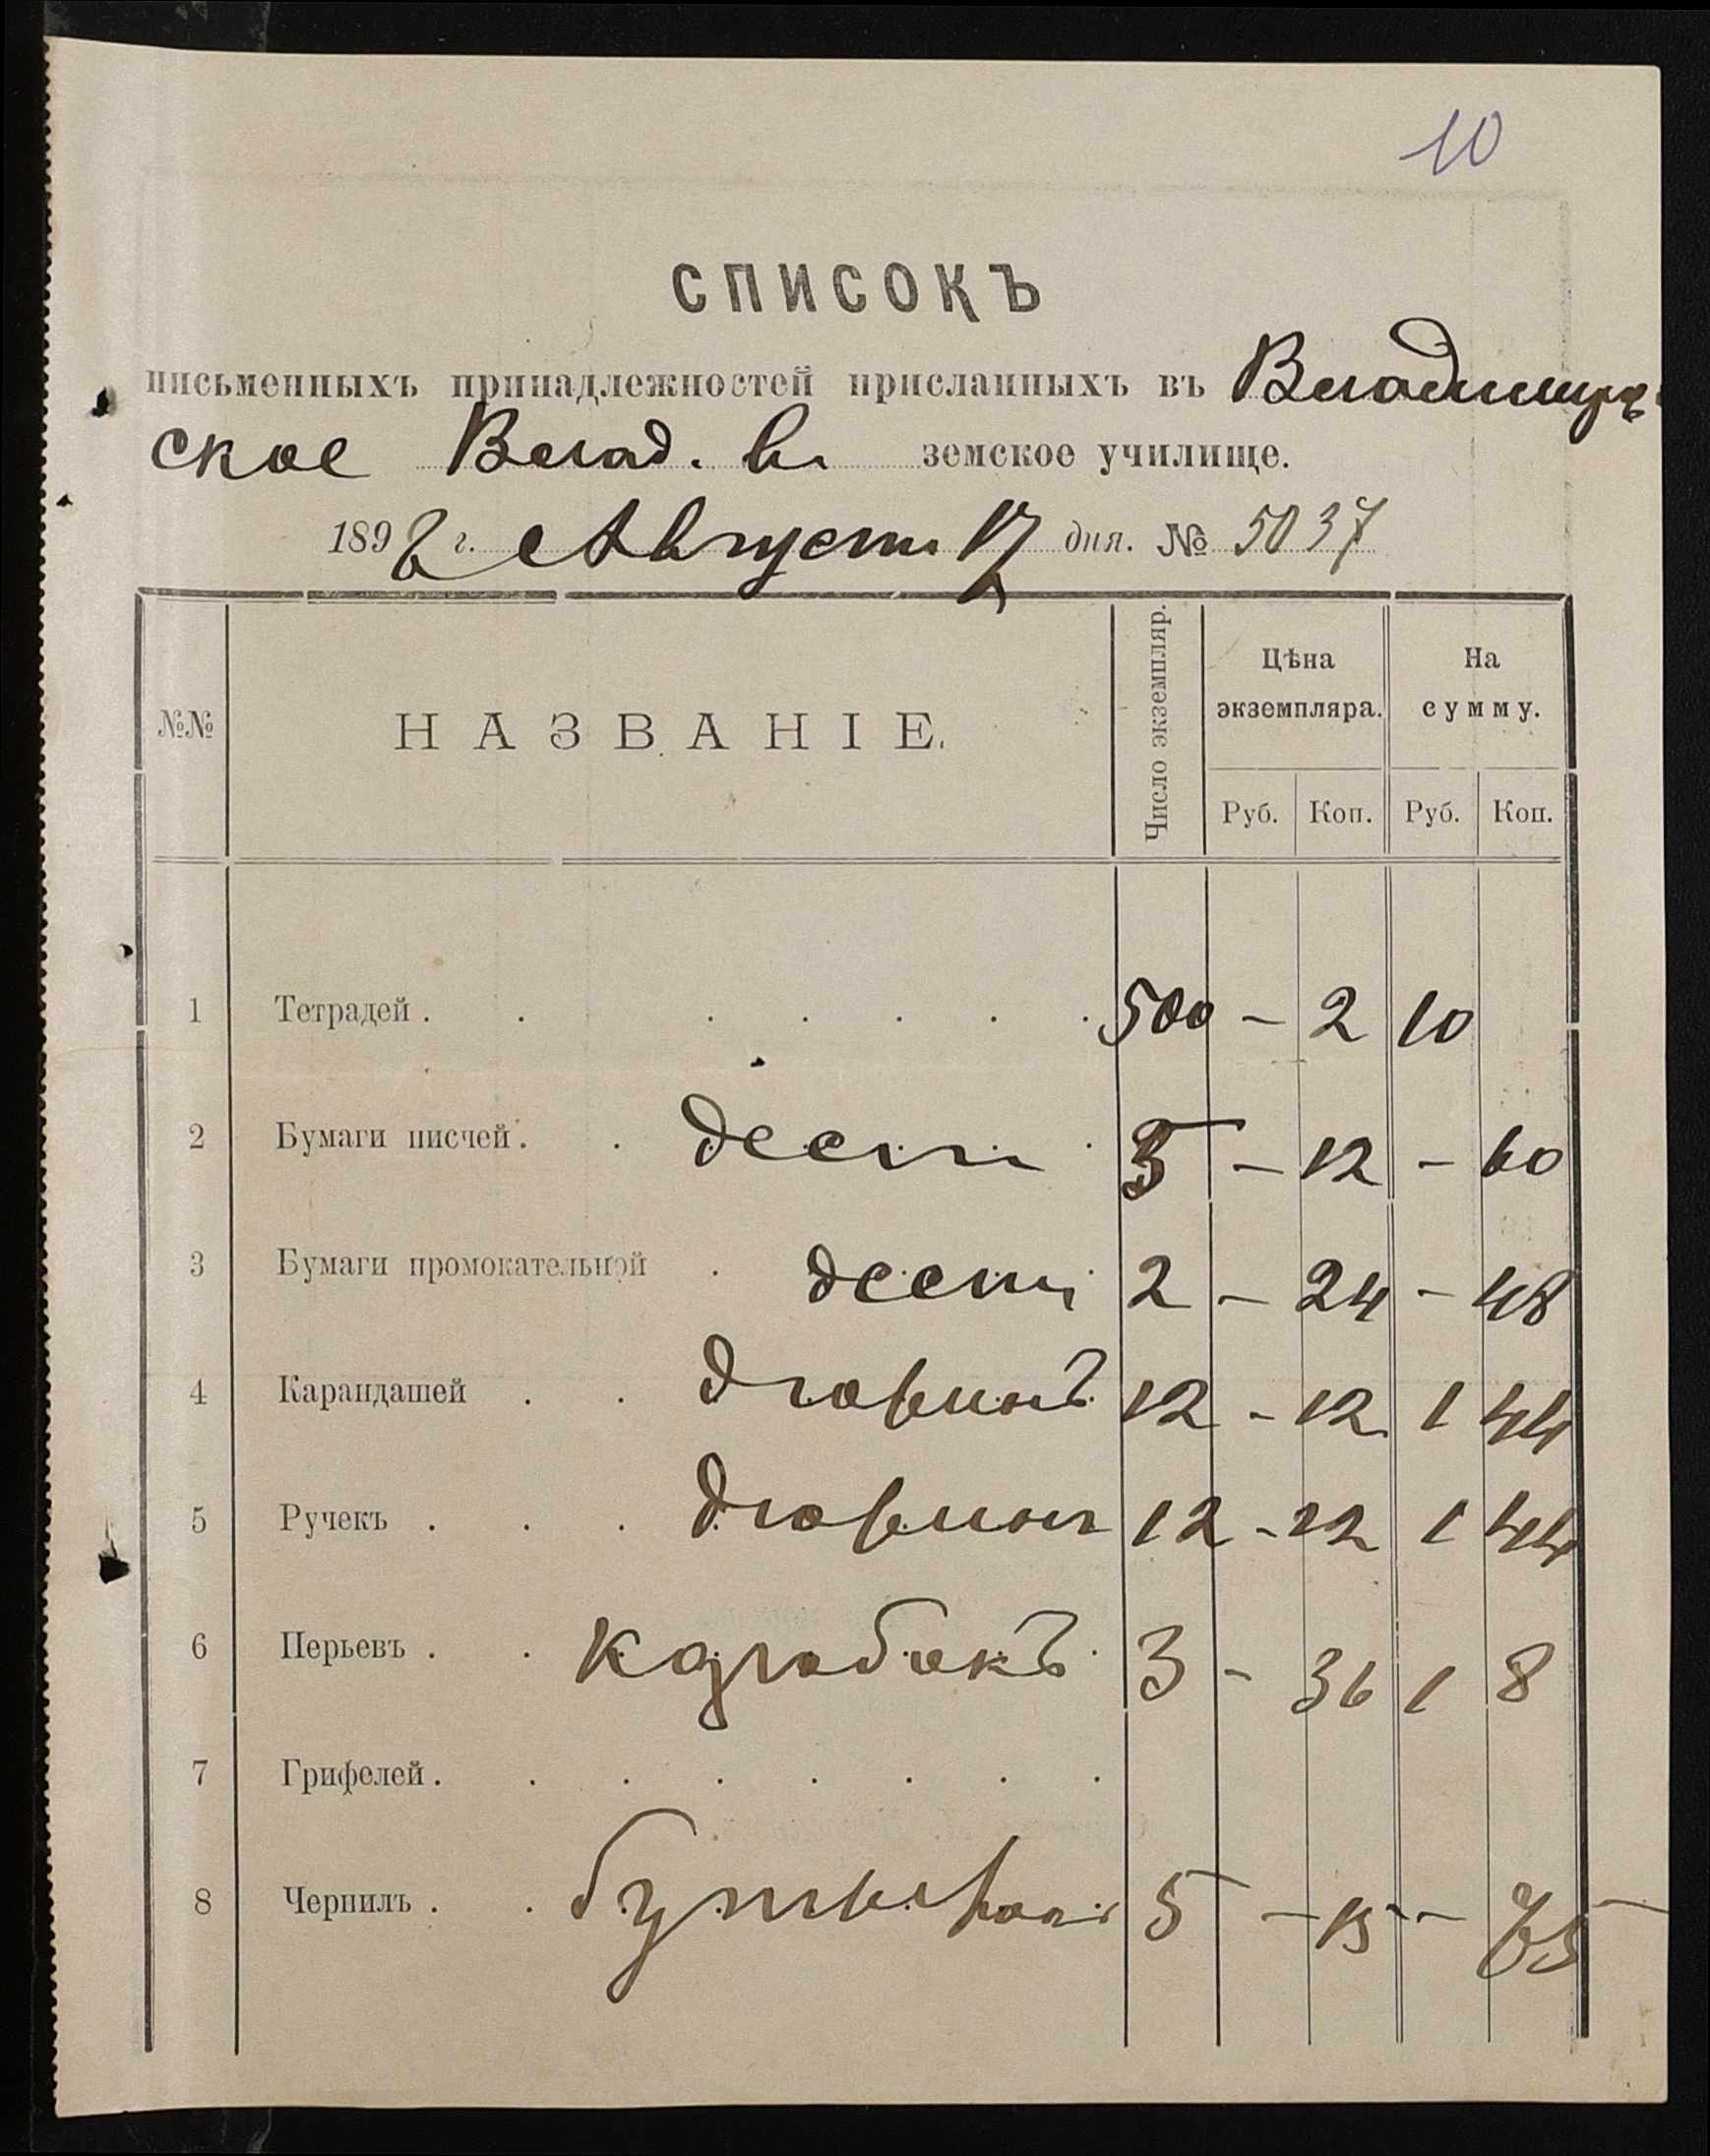 10
СПИСОКЪ
письменныхъ принадлежностей присланныхъ въ Владимiръ
ское Влад. в. земское училище.
1892 г. Августа 17 дня. № 5037
№№ НАЗВАНІЕ. Число экземпляр. Цѣна экземпляра. На сумму.
Руб. Коп. Руб. Коп.
1 Тетрадей . . . . . . . 500 - 2 10
2 Бумаги писчей . . дести . 5 - 12 - 60
3 Бумаги промокательной . дести 2 - 24 - 48
4 Карандашей . . дюжинъ 12 - 12 1 44
5 Ручекъ . . . дюжинъ 12 - 12 1 44
6 Перьевъ . . коробокъ 3 - 36 1 8
7 Грифелей . . . . . . . .
8 Чернилъ . . 5 - 15 - 75